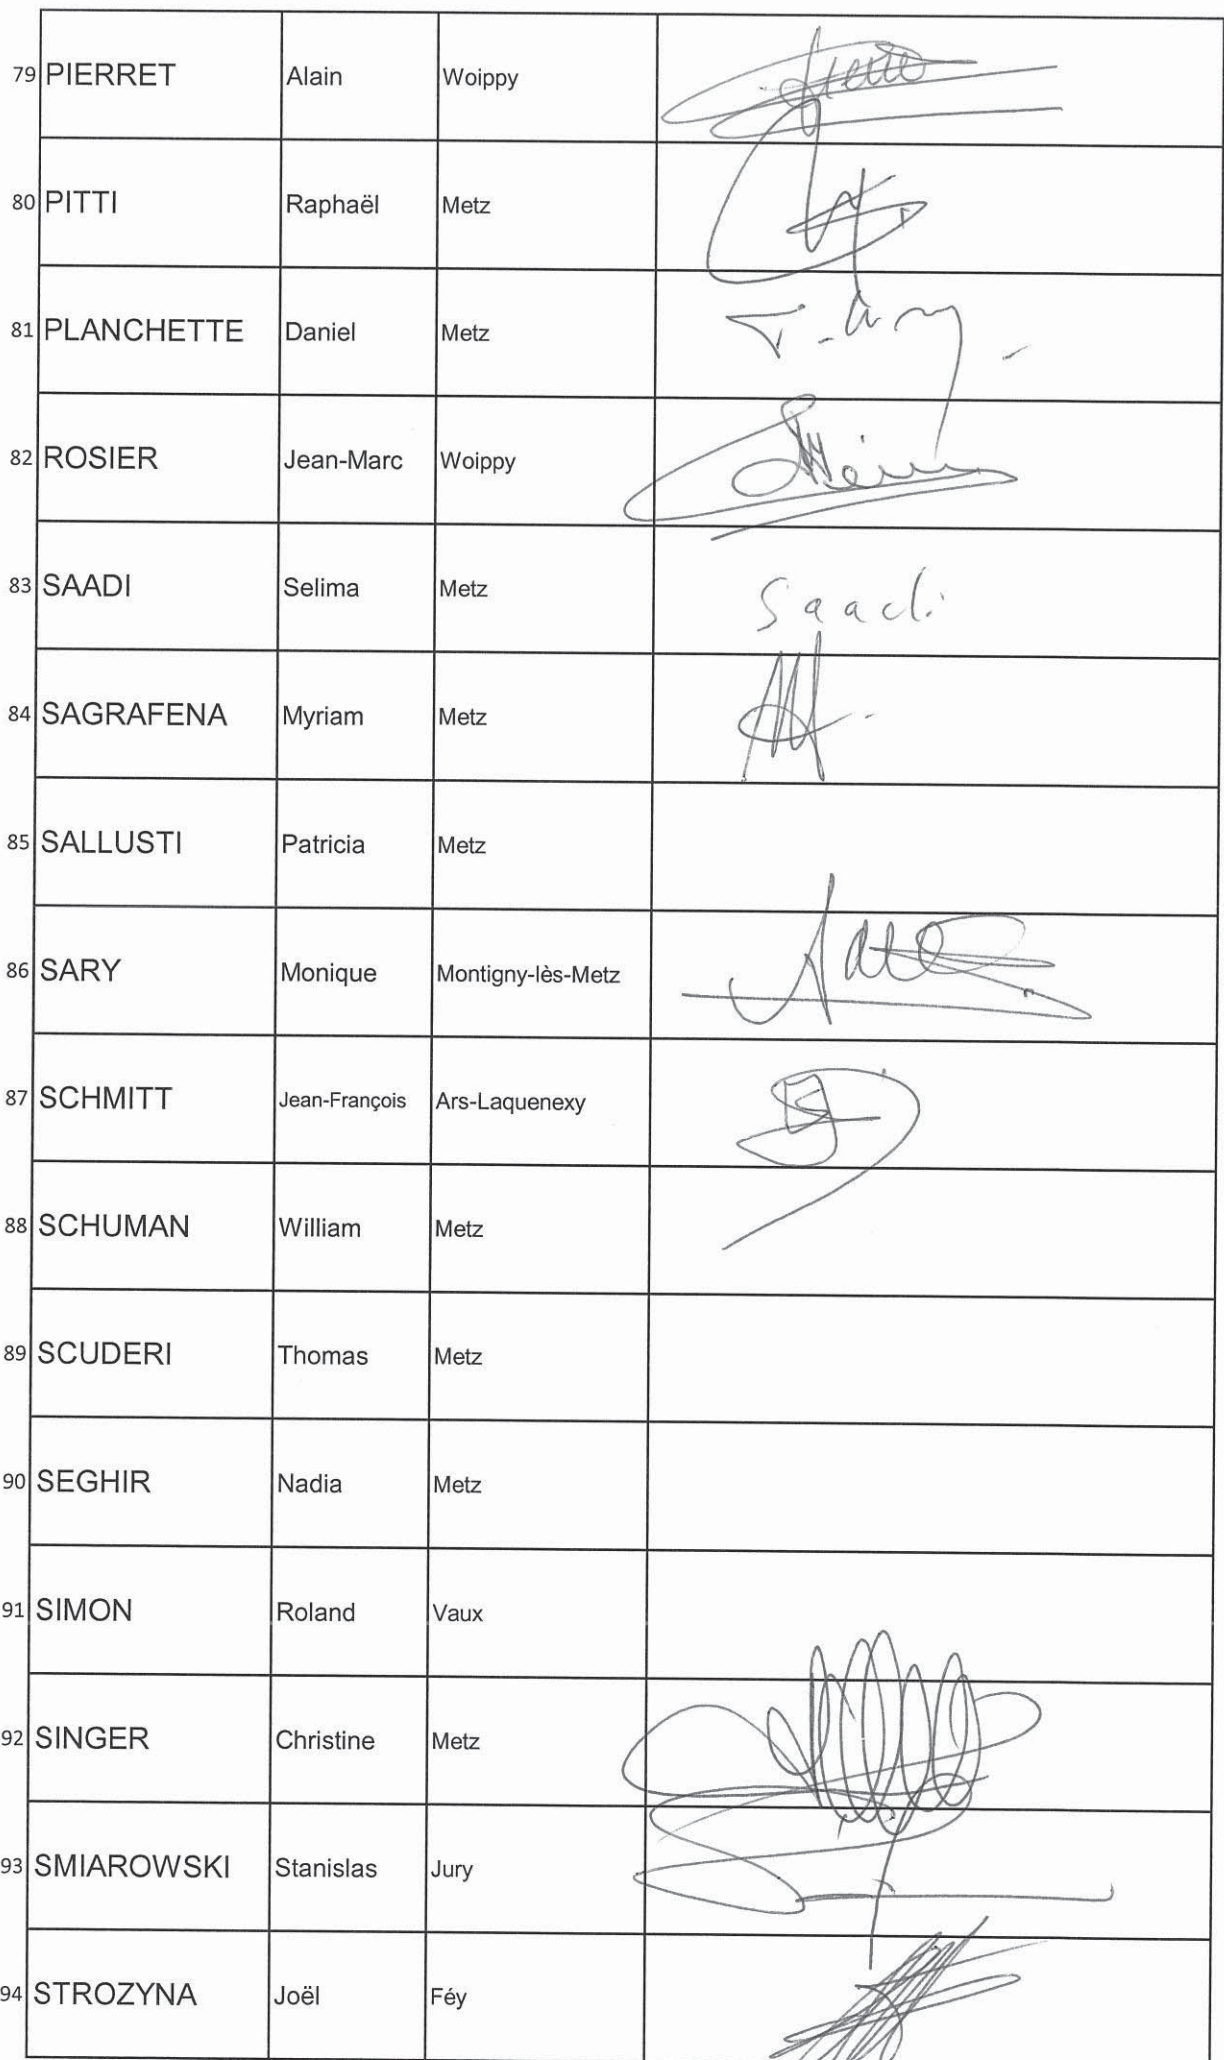 79 PIERRET Alain Woippy
80 PITTI Raphaël Metz
81 PLANCHETTE Daniel Metz
82 ROSIER Jean-Marc Woippy
83 SAADI Selima Metz Saadi
84 SAGRAFENA Myriam Metz
85 SALLUSTI Patricia Metz
86 SARY Monique Montigny-lès-Metz
87 SCHMITT Jean-François Ars-Laquenexy
88 SCHUMAN William Metz
89 SCUDERI Thomas Metz
90 SEGHIR Nadia Metz
91 SIMON Roland Vaux
92 SINGER Christine Metz
93 SMIAROWSKI Stanislas Jury
94 STROZYNA Joël Féy